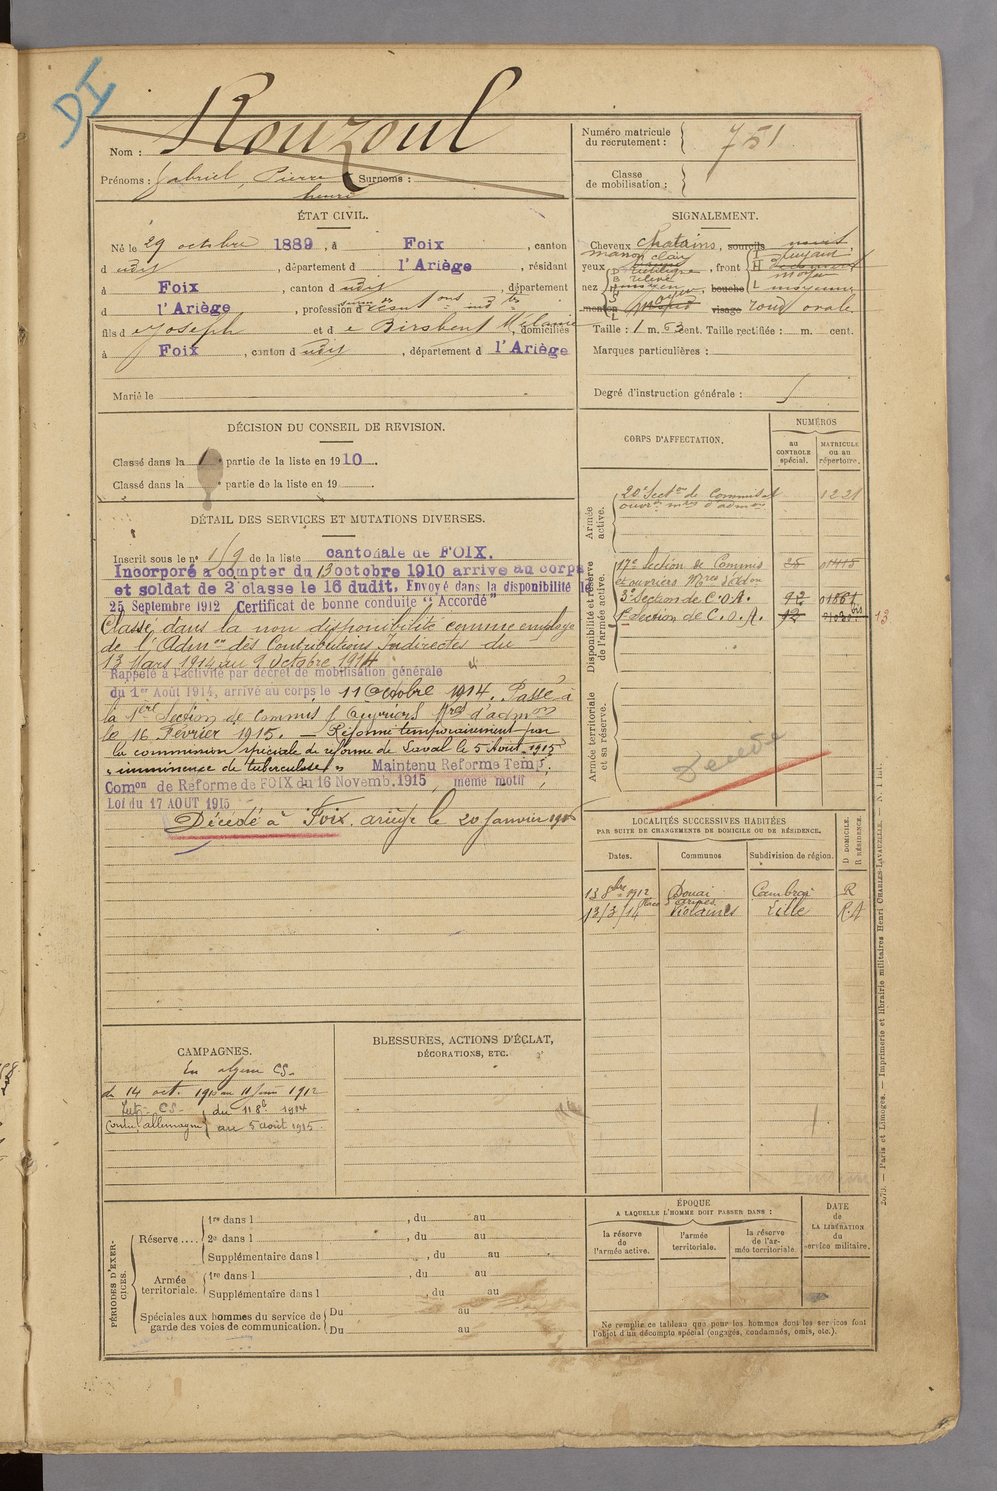 DI
Nom : Rouzoul
Prénoms : Gabriel, Pierre Surnoms :
henri
Numéro matricule
du recrutement : 751
Classe
de mobilisation :
ÉTAT CIVIL.
Né le 29 octobre 1889, à Foix, canton
d udit, département d l'Ariège, résidant
à Foix, canton d udit, département
d l'Ariège, profession d
fils d e Joseph et d e Birsbent Mélanie, domiciliés
à Foix, canton d udit, département d l'Ariège
Marié le
SIGNALEMENT.
Cheveux chatains, sourcils noirs
yeux marron clair, front I fuyant
H
L moyenne
nez
menton visage rond ovale
Taille : 1 m. 63 cent. Taille rectifiée : m. cent.
Marques particulières :
Degré d'instruction générale :
DÉCISION DU CONSEIL DE REVISION.
Classé dans la partie de la liste en 1910
Classé dans la partie de la liste en 19
DÉTAIL DES SERVICES ET MUTATIONS DIVERSES.
Inscrit sous le n° 119 de la liste cantonale de FOIX.
Incorporé à compter du 13 octobre 1910 arrivé au corps
et soldat de 2e classe le 16 dudit, Envoyé dans la disponibilité le
25 Septembre 1912 Certificat de bonne conduite "Accordé"
Classé dans la non disponibilité comme employé
de l'Admon des Contributions Indirectes du
13 Mars 1914 au 9 Octobre 1914
Rappelé à l'activité par décret de mobilisation générale
du 1er Août 1914, arrivé au corps le 11 Octobre 1914. Passé à
la 1ère Section de Commis & Ouvriers Mres d'admon
le 16 Février 1915. — Réformé temporairement par
la commission spéciale de réforme de Laval le 5 Août 1915
"imminence de tuberculose" Maintenu Réforme Temp.
Comon de Réforme de FOIX du 16 Novemb. 1915, même motif,
Loi du 17 AOUT 1915
Décédé à Foix, ariège le 20 Janvier
CORPS D'AFFECTATION.
NUMÉROS
au
CONTROLE
spécial.
MATRICULE
ou au
répertoire.
Armée
active.
20e Secton de Commis et
ouvrs mres d'admon 1221
Disponibilité et réserve
de l'armée active.
17e Section de Commis
et ouvriers Mres d'Adon
3e Section de C.O.A. 92
1e Section de C.O.A. 12 bis 13
Armée territoriale
et sa réserve.
Décédé
LOCALITÉS SUCCESSIVES HABITÉES
PAR SUITE DE CHANGEMENTS DE DOMICILE OU DE RÉSIDENCE.
Dates. Communes Subdivision de région. D DOMICILE. R RÉSIDENCE.
13 8bre 1912 Douai Cambrai R
13/3/14 Violaines Lille R.A
CAMPAGNES.
En algérie CS-
du 14 oct. 1910 au 11 Juin 1912
CS- du 11 8b 1914
Contre allemagne au 5 août 1915.
BLESSURES, ACTIONS D'ÉCLAT,
DÉCORATIONS, ETC.
PÉRIODES D'EXERCICES.
Réserve.... 1re dans l , du au
2e dans l , du au
Supplémentaire dans l , du au
Armée
territoriale. 1re dans l , du au
Supplémentaire dans l , du au
Spéciales aux hommes du service de
garde des voies de communication. Du au
Du au
ÉPOQUE
A LAQUELLE L'HOMME DOIT PASSER DANS :
la réserve
de
l'armée active.
l'armée
territoriale.
la réserve
de l'ar-
mée territoriale
DATE
de
LA LIBÉRATION
du
service militaire.
Ne remplir ce tableau que pour les hommes dont les services font
l'objet d'un décompte spécial (engagés, condamnés, omis, etc.).
Paris et Limoges. — Imprimerie et librairie militaires Henri CHARLES-LAVAUZELLE.